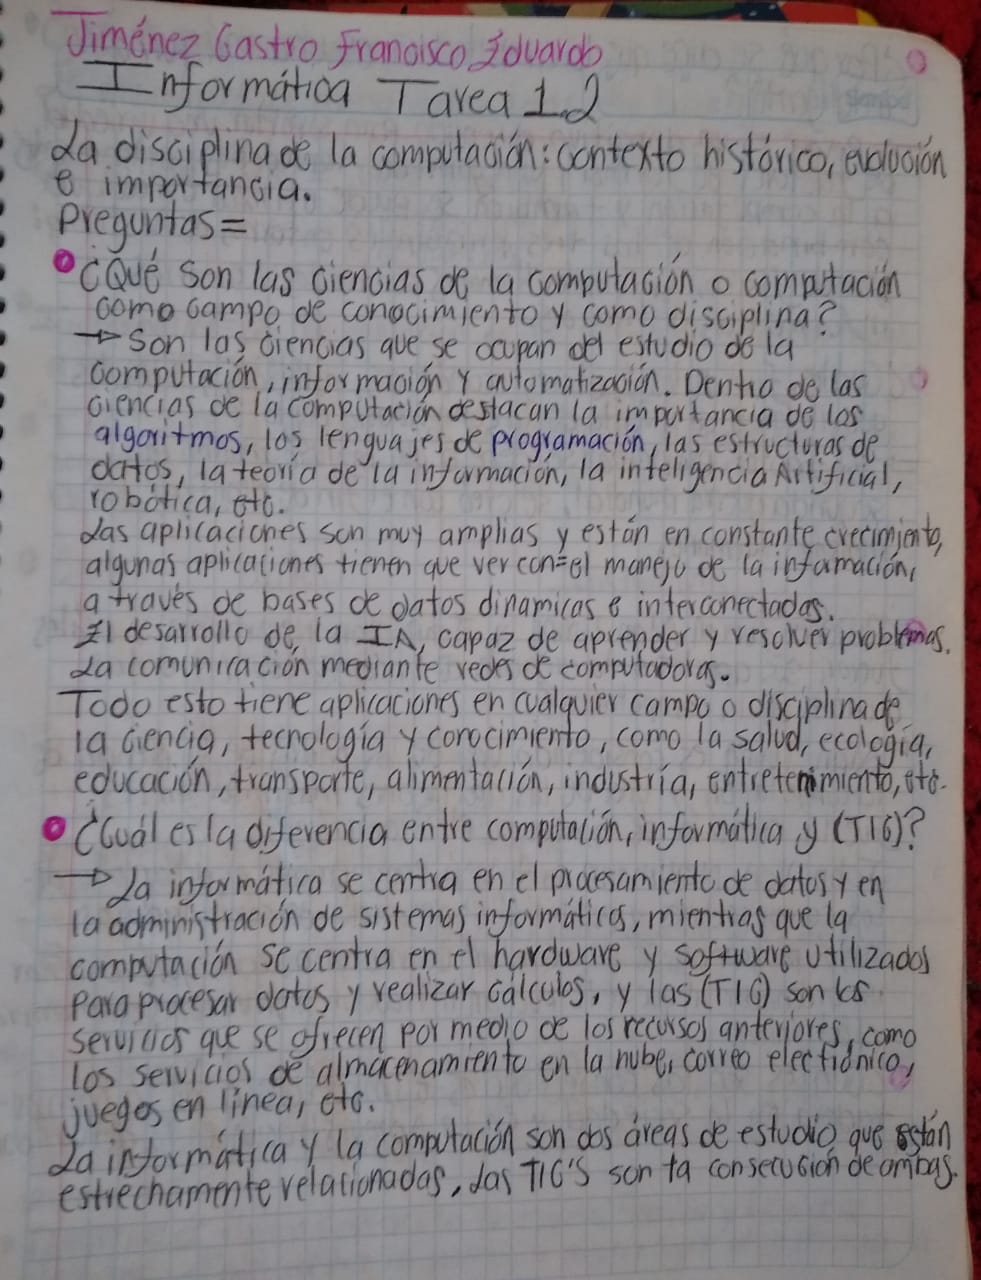 Jiménez Castro Francisco Eduardo
Informática Tarea 1.2
La disciplina de la computación: contexto histórico, evolución
e importancia.
Preguntas=
¿Qué son las ciencias de la computación o computación
como campo de conocimiento y como disciplina?
→ Son las ciencias que se ocupan del estudio de la
computación, información y automatización. Dentro de las
ciencias de la computación destacan la importancia de los
algoritmos, los lenguajes de programación, las estructuras de
datos, la teoría de la información, la inteligencia Artificial,
robótica, etc.
Las aplicaciones son muy amplias y están en constante crecimiento,
algunas aplicaciones tienen que ver con=el manejo de la información,
a través de bases de datos dinamicas e interconectadas.
El desarrollo de la IA, capaz de aprender y resolver problemas.
La comunicación mediante redes de computadoras.
Todo esto tiene aplicaciones en cualquier campo o disciplina de
la ciencia, tecnología y conocimiento, como la salud, ecología,
educación, transporte, alimentación, industría, entretenimiento, etc.
¿Cuál es la diferencia entre computación, informática y (TIC)?
→ La informática se centra en el procesamiento de datos y en
la administración de sistemas informáticos, mientras que la
computación se centra en el hardware y software utilizados
para procesar datos y realizar cálculos, y las (TIC) son los
servicios que se ofrecen por medio de los recursos anteriores, como
los servicios de almacenamiento en la nube, correo electrónico,
juegos en línea, etc.
La informática y la computación son dos áreas de estudio que están
estrechamente relacionadas, las TIC'S son la consecución de ambas.